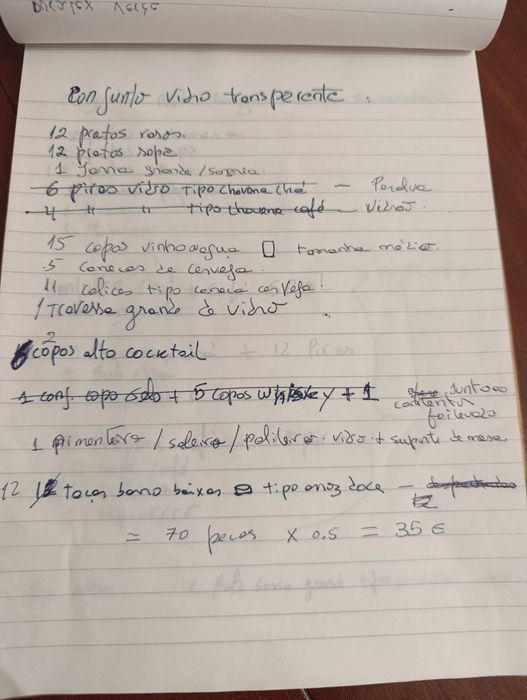 Conjunto vidro transparente.
12 pratos rasos.
12 pratos sopa
1 Jarra grande / sangria
6 pires vidro tipo chavena chá — Perdua
4 " " tipo chavena café — Vidrão.
15 copos vinho agua tamanho médio.
5 canecas de cerveja.
4 calices tipo caneca cerveja!
1 Travessa grande de vidro
2 copos alto cocktail
1 conj. copo + 5 copos whiskey + 1 junto ao
foi levado
1 pimenteiro / saleiro / paliteiro. vidro + suporte de mesa
12 taças barro baixas tipo arroz doce —
12
= 70 peças x 0.5 = 35 €